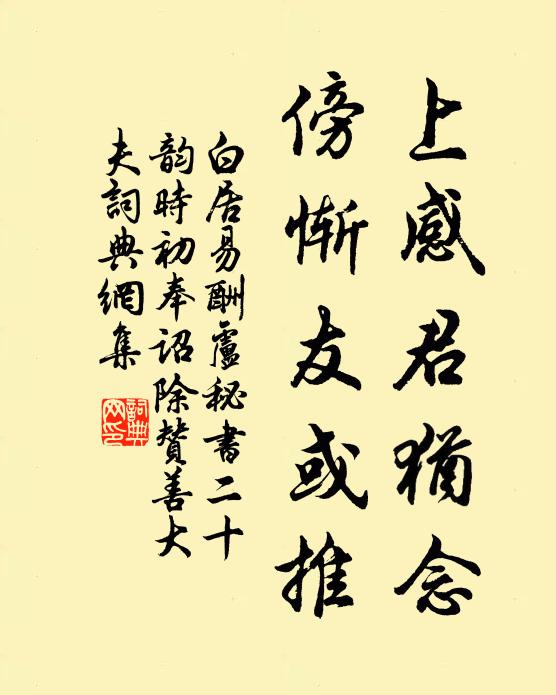 上感君猶念
傍慚友或推
白居易酬盧秘書二十
韵時初奉詔除賛善大
夫詞典網集
詞典
网印